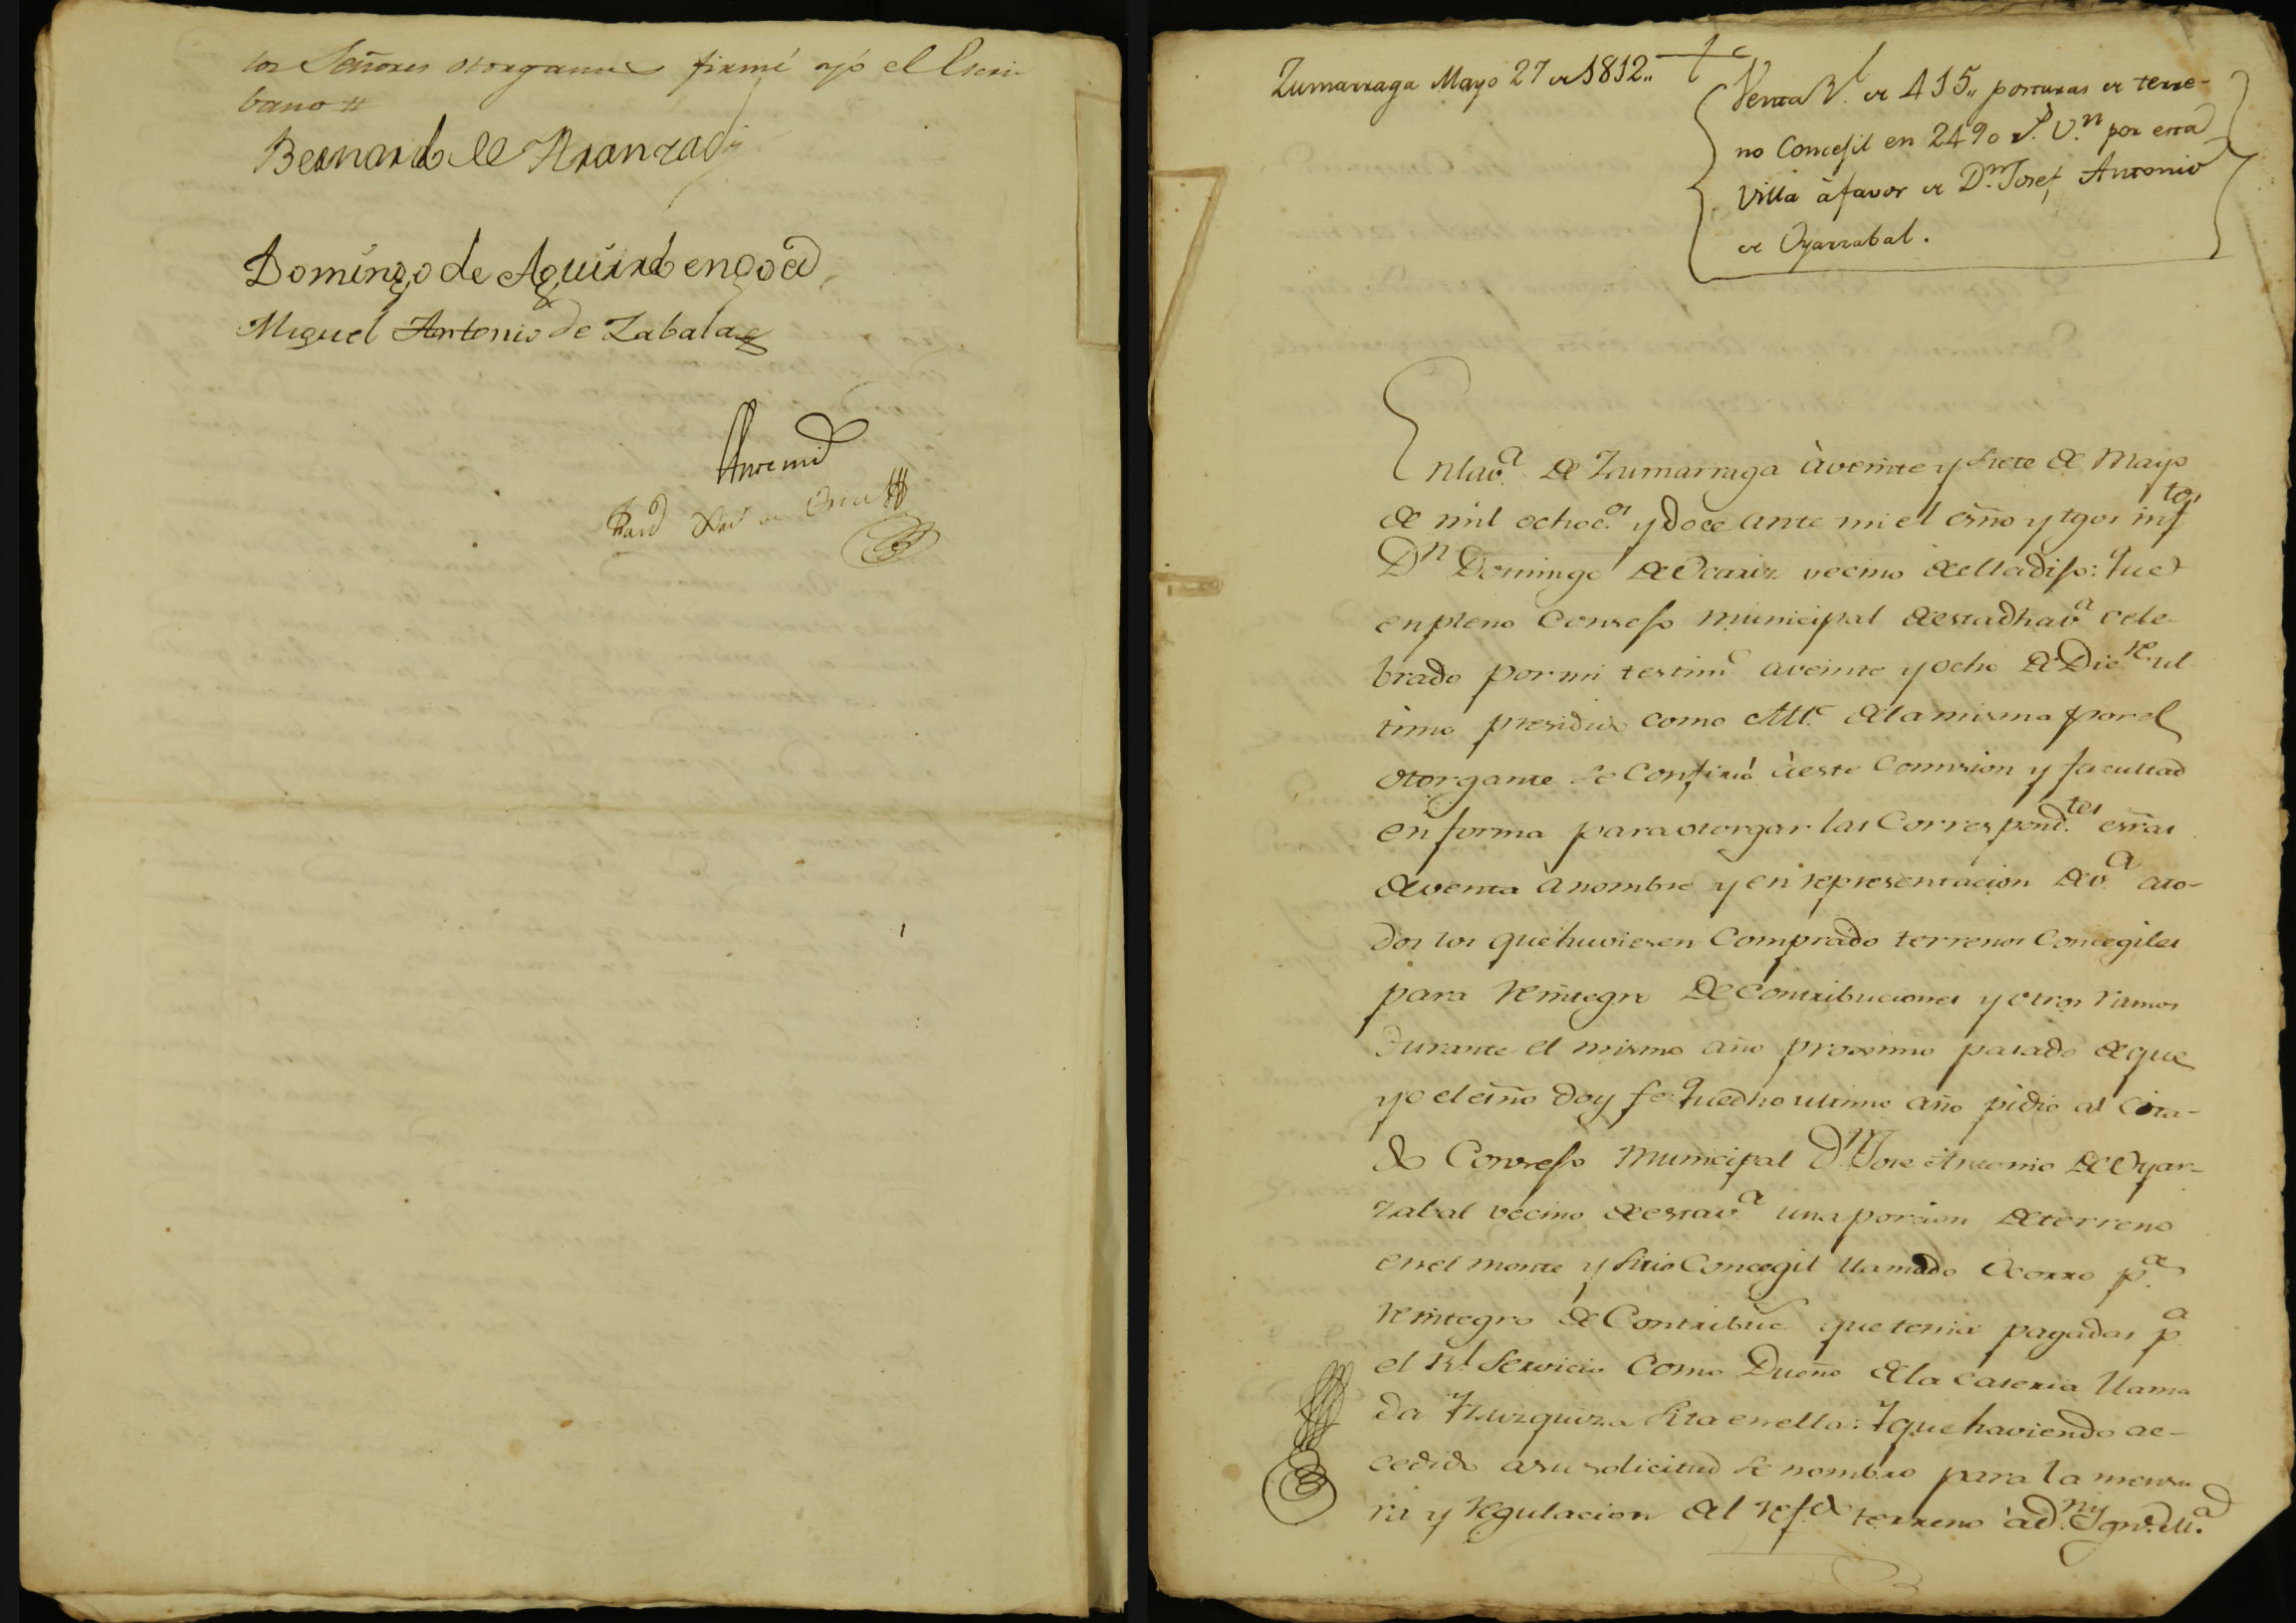 los Señores otorgantes firmé yó el Escri-
bano #
Bernardo de Aranzadi
Domingo de Aguirrebengoa
Miguel Antonio de Zabala
Ante mi
Zumarraga Mayo 27 de 1812..
Venta Rl. de 415,, posturas de terre-
no Concejil en 2490 rs. Vn. por esta
Villa à favor de Dn. Josef Antonio
de Oyarzabal.
En la va. de Zumarraga à veinte y siete de Mayo
de mil ochocos. y doce ante mi el esño y tgos inftos
Dn Domingo de Ocariz vecino de ella dijo: que
en pleno Consejo municipal de esta dha va. cele-
brado por mi testimo a veinte y ocho de Dicre. ul-
timo presidido como Alle. de la misma por el
otorgante se confirió à este Comision y facultad
en forma para otorgar las Correspondtes. esrras
de venta à nombre y en representacion de va. ato-
dos los que huviesen Comprado terrenos Concegiles
para Reintegro de Contribuciones y otros ramos
durante el mismo año proximo pasado de que
yo el esño doy fe: que dho ultimo año pidio al cita-
do Consejo Municipal Dn. Jose Antonio de Oyar-
zabal vecino de esta va. una porcion de terreno
en el monte y sitio Concegil llamado Ocorro pa.
Reintegro de Contribuc. que tenia pagadas pa
el Rl. Servicio Como Dueño de la caseria llama
da Yzuzquiza sita en ella: Y que haviendo ac-
cedido a su solicitud se nombró para la mensu
ra y regulacion del refdo terreno à Dn. Ygno. Ma.